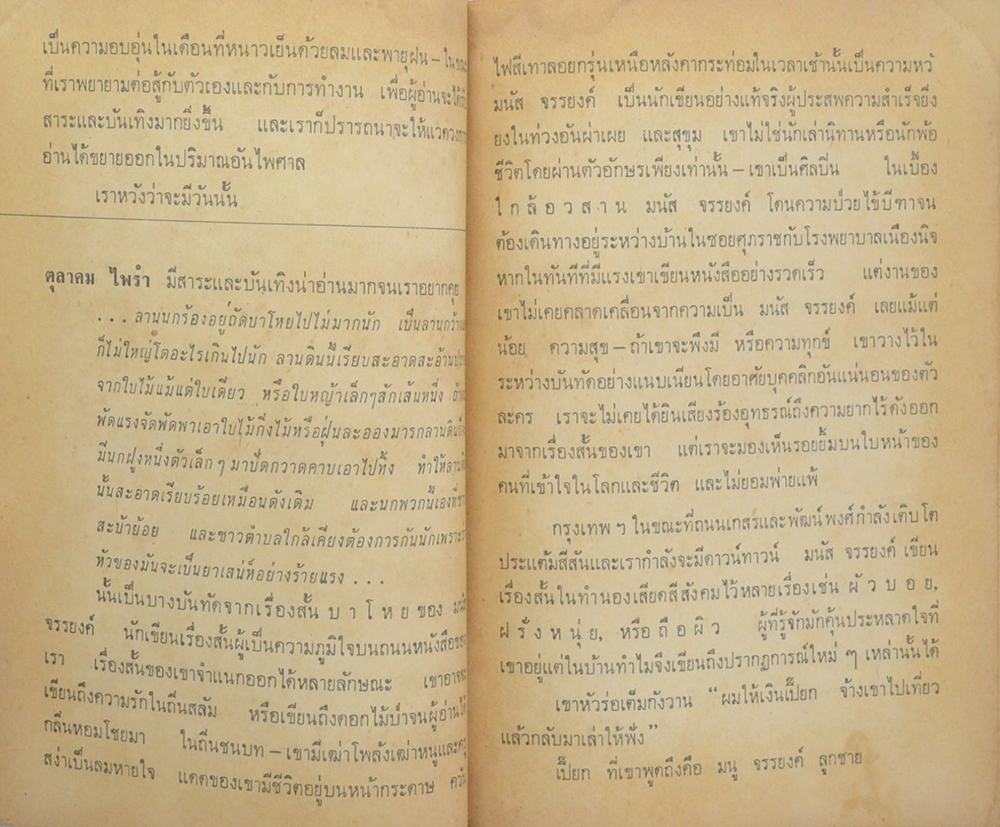 เป็นความอบอุ่นในเดือนที่หนาวเย็นด้วยลมและพายุฝน – ในขณะ
ที่เราพยายามต่อสู้กับตัวเองและกับการทำงาน เพื่อผู้อ่านจะได้รับ
สาระและบันเทิงมากยิ่งขึ้น และเราก็ปรารถนาจะให้แวดวงการ
อ่านได้ขยายออกในปริมาณอันไพศาล
เราหวังว่าจะมีวันนั้น
ตุลาคม ไพรำ มีสาระและบันเทิงน่าอ่านมากจนเราอยากคุย
. . . ลานนกร้องอยู่ถัดบาโหยไปไม่มากนัก เป็นลานกว้าง
ก็ไม่ใหญ่โตอะไรเกินไปนัก ลานดินนี้เรียบสะอาดสะอ้าน
จากใบไม้แม้แต่ใบเดียว หรือใบหญ้าเล็กๆสักเส้นหนึ่ง
พัดแรงจัดพัดพาเอาใบไม้กิ่งไม้หรือฝุ่นละอองมารกลานดิน
มีนกฝูงหนึ่งตัวเล็ก ๆ มาปัดกวาดคาบเอาไปทิ้ง ทำให้ลาน
นั้นสะอาดเรียบร้อยเหมือนดังเดิม และนกพวกนี้เองที่
สะบ้าย้อย และชาวตำบลใกล้เคียงต้องการกันนักเพราะ
หัวของมันจะเป็นยาเสน่ห์อย่างร้ายแรง . . .
นั้นเป็นบางบันทัดจากเรื่องสั้น บ า โ ห ย ของ มนัส
จรรยงค์ นักเขียนเรื่องสั้นผู้เป็นความภูมิใจบนถนนหนังสือของ
เรา เรื่องสั้นของเขาจำแนกออกได้หลายลักษณะ เขาอาจจะ
เขียนถึงความรักในถิ่นสลัม หรือเขียนถึงดอกไม้ป่าจนผู้อ่านได้
กลิ่นหอมโชยมา ในถิ่นชนบท – เขามีเฒ่าโพล้งเฒ่าหนูและครู
สง่าเป็นลมหายใจ แดดของเขามีชีวิตอยู่บนหน้ากระดาษ ควัน
ไฟสีเทาลอยกรุ่นเหนือหลังคากระท่อมในเวลาเช้านั้นเป็นความหวั
มนัส จรรยงค์ เป็นนักเขียนอย่างแท้จริงผู้ประสพความสำเร็จยิ่ง
ยงในท่วงอันผ่าเผย และสุขุม เขาไม่ใช่นักเล่านิทานหรือนักพ้อ
ชีวิตโดยผ่านตัวอักษรเพียงเท่านั้น – เขาเป็นศิลปิน ในเบื้อง
ใ ก ล้ อ ว ส า น มนัส จรรยงค์ โดนความป่วยไข้บีฑาจน
ต้องเดินทางอยู่ระหว่างบ้านในซอยศุภราชกับโรงพยาบาลเนืองนิจ
หากในทันทีที่มีแรงเขาเขียนหนังสืออย่างรวดเร็ว แต่งานของ
เขาไม่เคยคลาดเคลื่อนจากความเป็น มนัส จรรยงค์ เลยแม้แต่
น้อย ความสุข – ถ้าเขาจะพึงมี หรือความทุกข์ เขาวางไว้ใน
ระหว่างบันทัดอย่างแนบเนียนโดยอาศัยบุคคลิกอันแน่นอนของตัว
ละคร เราจะไม่เคยได้ยินเสียงร้องอุทธรณ์ถึงความยากไร้ดังออก
มาจากเรื่องสั้นของเขา แต่เราจะมองเห็นรอยยิ้มบนใบหน้าของ
คนที่เข้าใจในโลกและชีวิต และไม่ยอมพ่ายแพ้
กรุงเทพ ฯ ในขณะที่ถนนเกสรและพัฒน์พงศ์กำลังเติบโต
ประแต้มสีสันและเรากำลังจะมีดาวน์ทาวน์ มนัส จรรยงค์ เขียน
เรื่องสั้นในทำนองเสียดสีสังคมไว้หลายเรื่องเช่น ผั ว บ อ ย,
ฝ รั่ ง ห นุ่ ย, หรือ ถื อ ผิ ว ผู้ที่รู้จักมักคุ้นประหลาดใจที่
เขาอยู่แต่ในบ้านทำไมจึงเขียนถึงปรากฏการณ์ใหม่ ๆ เหล่านั้นได้
เขาหัวร่อเต็มกังวาน “ผมให้เงินเปี๊ยก จ้างเขาไปเที่ยว
แล้วกลับมาเล่าให้ฟัง”
เปี๊ยก ที่เขาพูดถึงคือ มนู จรรยงค์ ลูกชาย